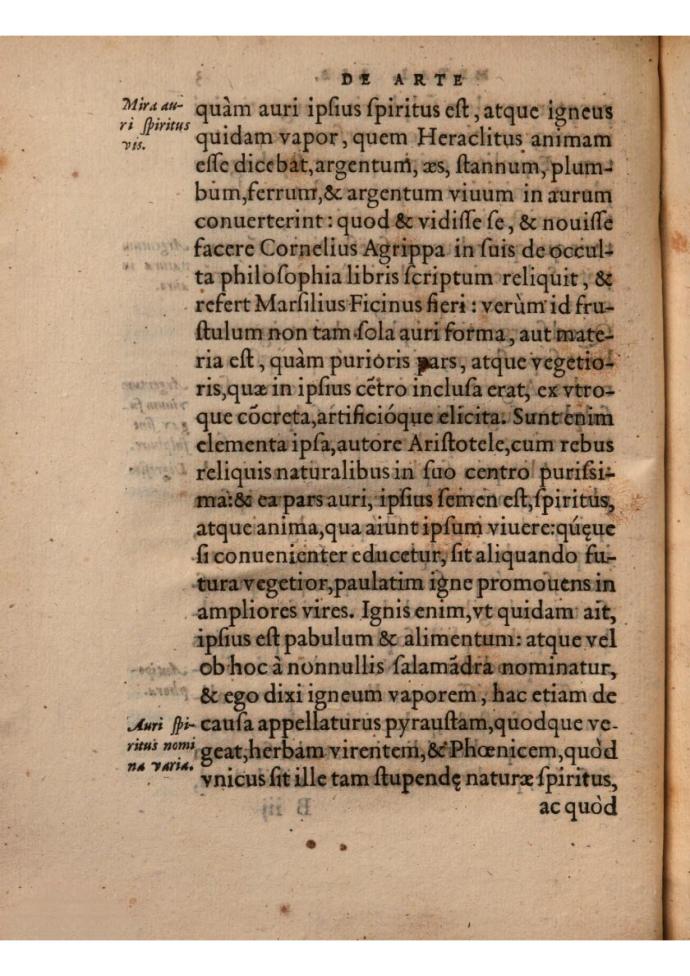 DE ARTE
Mira au-
ri ſpiritus
vis.
quàm auri ipſius ſpiritus eſt, atque igneus
quidam vapor, quem Heraclitus animam
eſſe dicebat, argentum, æs, ſtannum, plum-
bum, ferrum, & argentum viuum in aurum
conuerterint: quod & vidiſſe ſe, & nouiſſe
facere Cornelius Agrippa in ſuis de occul-
ta philoſophia libris ſcriptum reliquit, &
refert Marſilius Ficinus fieri: verùm id fru-
ſtulum non tam ſola auri forma, aut mate-
ria eſt, quàm purioris pars, atque vegetio-
ris, quæ in ipſius cẽtro incluſa erat, ex vtro-
que cõcreta, artificióque elicita. Sunt enim
elementa ipſa, autore Ariſtotele, cum rebus
reliquis naturalibus in ſuo centro puriſſi-
ma: & ea pars auri, ipſius ſemen eſt, ſpiritus,
atque anima, qua aiunt ipſum viuere: qúęue
ſi conuenienter educetur, ſit aliquando fu-
tura vegetior, paulatim igne promouens in
ampliores vires. Ignis enim, vt quidam ait,
ipſius eſt pabulum & alimentum: atque vel
ob hoc à nonnullis ſalamãdra nominatur,
& ego dixi igneum vaporem, hac etiam de
Auri ſpi-
ritus nomi
na varia.
cauſa appellaturus pyrauſtam, quodque ve-
geat, herbam virentem, & Phœnicem, quòd
vnicus ſit ille tam ſtupendę naturæ ſpiritus,
ac quòd